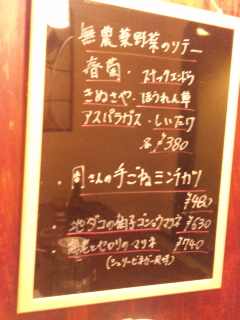 無農薬野菜のソテー
春菊・スナックエンドウ
きぬさや・ほうれん草
アスパラガス・しいたけ
各¥380
・岡さんの手ごねミンチカツ
¥480
・地ダコの柚子コショウマリネ ¥630
・海老とセロリのマリネ ¥740
(シェリービネガー風味)